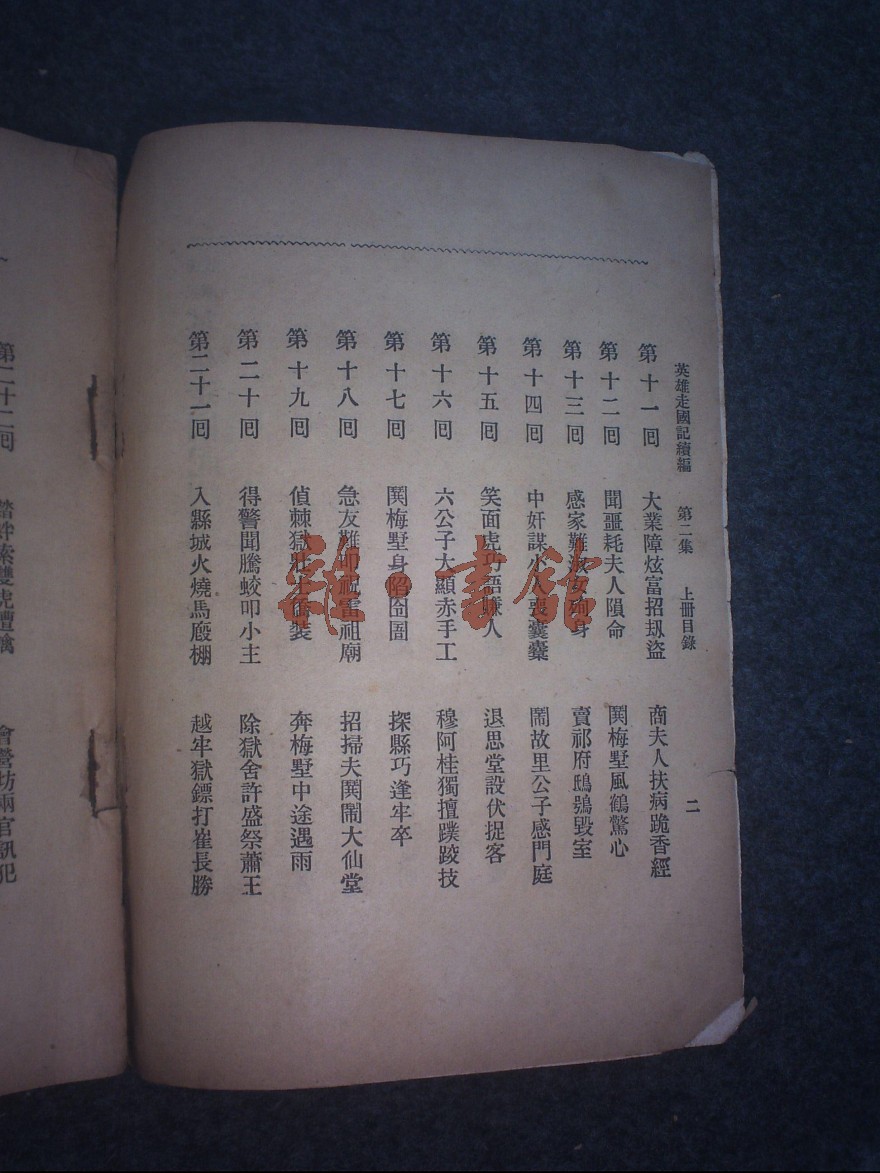 英雄走國記續編 第二集 上冊目錄 二
第十一回 大業障炫富招刼盜 商夫人扶病跪香經
第十二回 聞噩耗夫人隕命 鬨梅墅風鶴驚心
第十三回 感家難淑女殉身 賣祁府鴟鴞毀室
第十四回 中奸謀小人喪囊橐 鬧故里公子感門庭
第十五回 笑面虎巧語賺人 退思堂設伏捉客
第十六回 六公子大顯赤手工 穆阿桂獨擅蹼跤技
第十七回 鬨梅墅身陷囹圄 探縣巧逢牢卒
第十八回 急友難叩祝雷祖廟 招掃夫鬨鬧大仙堂
第十九回 偵棘獄壯士喬裝 奔梅墅中途遇雨
第二十回 得警聞騰蛟叩小主 除獄舍許盛祭蕭王
第二十一回 入縣城火燒馬廄棚 越牢獄鏢打崔長勝
第二十二回 雙虎遭擒 會營坊兩官訊犯
雜·書館